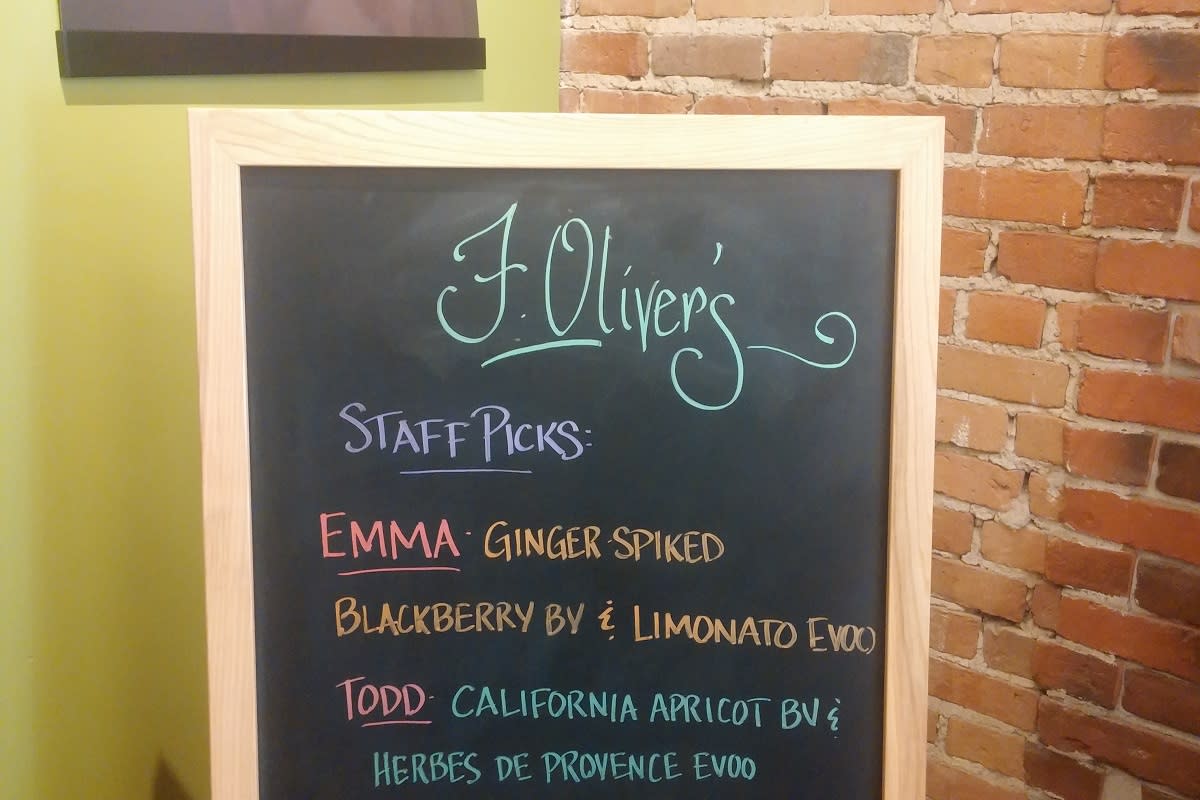 F. Oliver's
STAFF PICKS:
EMMA · GINGER SPIKED
BLACKBERRY BV & LIMONATO EVOO
TODD · CALIFORNIA APRICOT BV &
HERBES DE PROVENCE EVOO